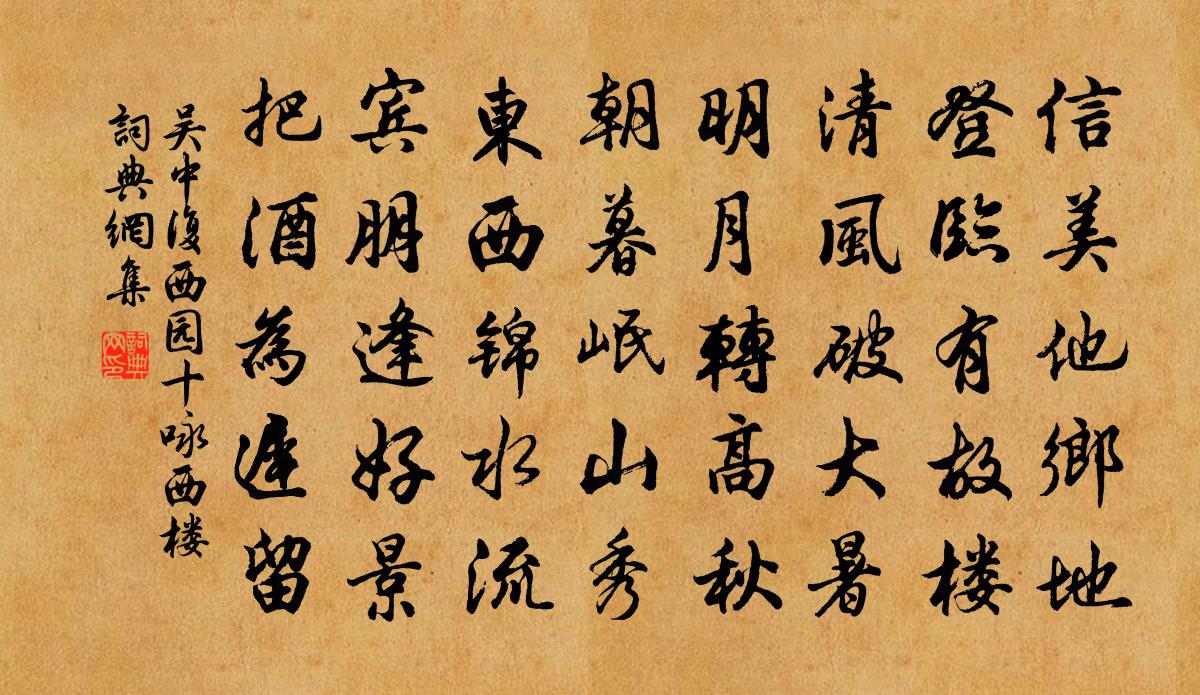 信美他鄉地
登臨有故楼
清風破大暑
明月轉高秋
朝暮岷山秀
東西锦水流
宾朋逢好景
把酒為遅留
吴中復西园十咏西楼
詞典網集
詞典网印